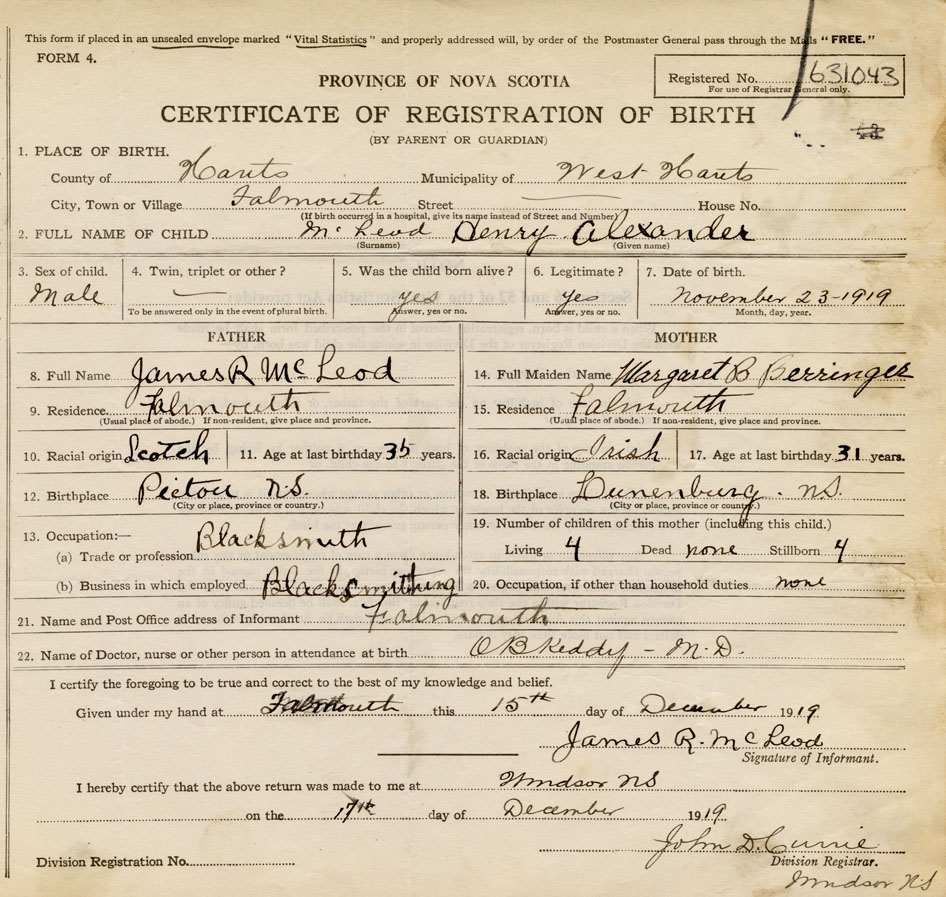 This form if placed in an unsealed envelope marked "Vital Statistics" and properly addressed will, by order of the Postmaster General pass through the Mails "FREE."
FORM 4.
PROVINCE OF NOVA SCOTIA
Registered No. 631043
For use of Registrar General only.
CERTIFICATE OF REGISTRATION OF BIRTH
(BY PARENT OR GUARDIAN)
1. PLACE OF BIRTH.
County of Hants Municipality of West Hants
City, Town or Village Falmouth Street House No.
(If birth occurred in a hospital, give its name instead of Street and Number)
2. FULL NAME OF CHILD McLeod Henry Alexander
(Surname) (Given name)
3. Sex of child. 4. Twin, triplet or other? 5. Was the child born alive? 6. Legitimate? 7. Date of birth.
Male — yes yes November 23-1919
To be answered only in the event of plural birth. Answer, yes or no. Answer, yes or no. Month, day, year.
FATHER MOTHER
8. Full Name James R McLeod 14. Full Maiden Name Margaret B Berringer
9. Residence. Falmouth 15. Residence Falmouth
(Usual place of abode.) If non-resident, give place and province. (Usual place of abode.) If non-resident, give place and province.
10. Racial origin Scotch 11. Age at last birthday 35 years. 16. Racial origin Irish 17. Age at last birthday 31 years.
12. Birthplace Pictou N.S. 18. Birthplace Lunenburg. N.S.
(City or place, province or country.) (City or place, province or country.)
13. Occupation:— 19. Number of children of this mother (including this child.)
(a) Trade or profession Blacksmith Living 4 Dead none Stillborn 4
(b) Business in which employed Blacksmithing 20. Occupation, if other than household duties none
21. Name and Post Office address of Informant Falmouth
22. Name of Doctor, nurse or other person in attendance at birth O B Keddy – M.D.
I certify the foregoing to be true and correct to the best of my knowledge and belief.
Given under my hand at Falmouth this 15th day of December 1919
James R. McLeod
Signature of Informant.
I hereby certify that the above return was made to me at Windsor NS
on the 17th day of December 1919
John D. Currie
Division Registration No. Division Registrar.
Windsor N.S